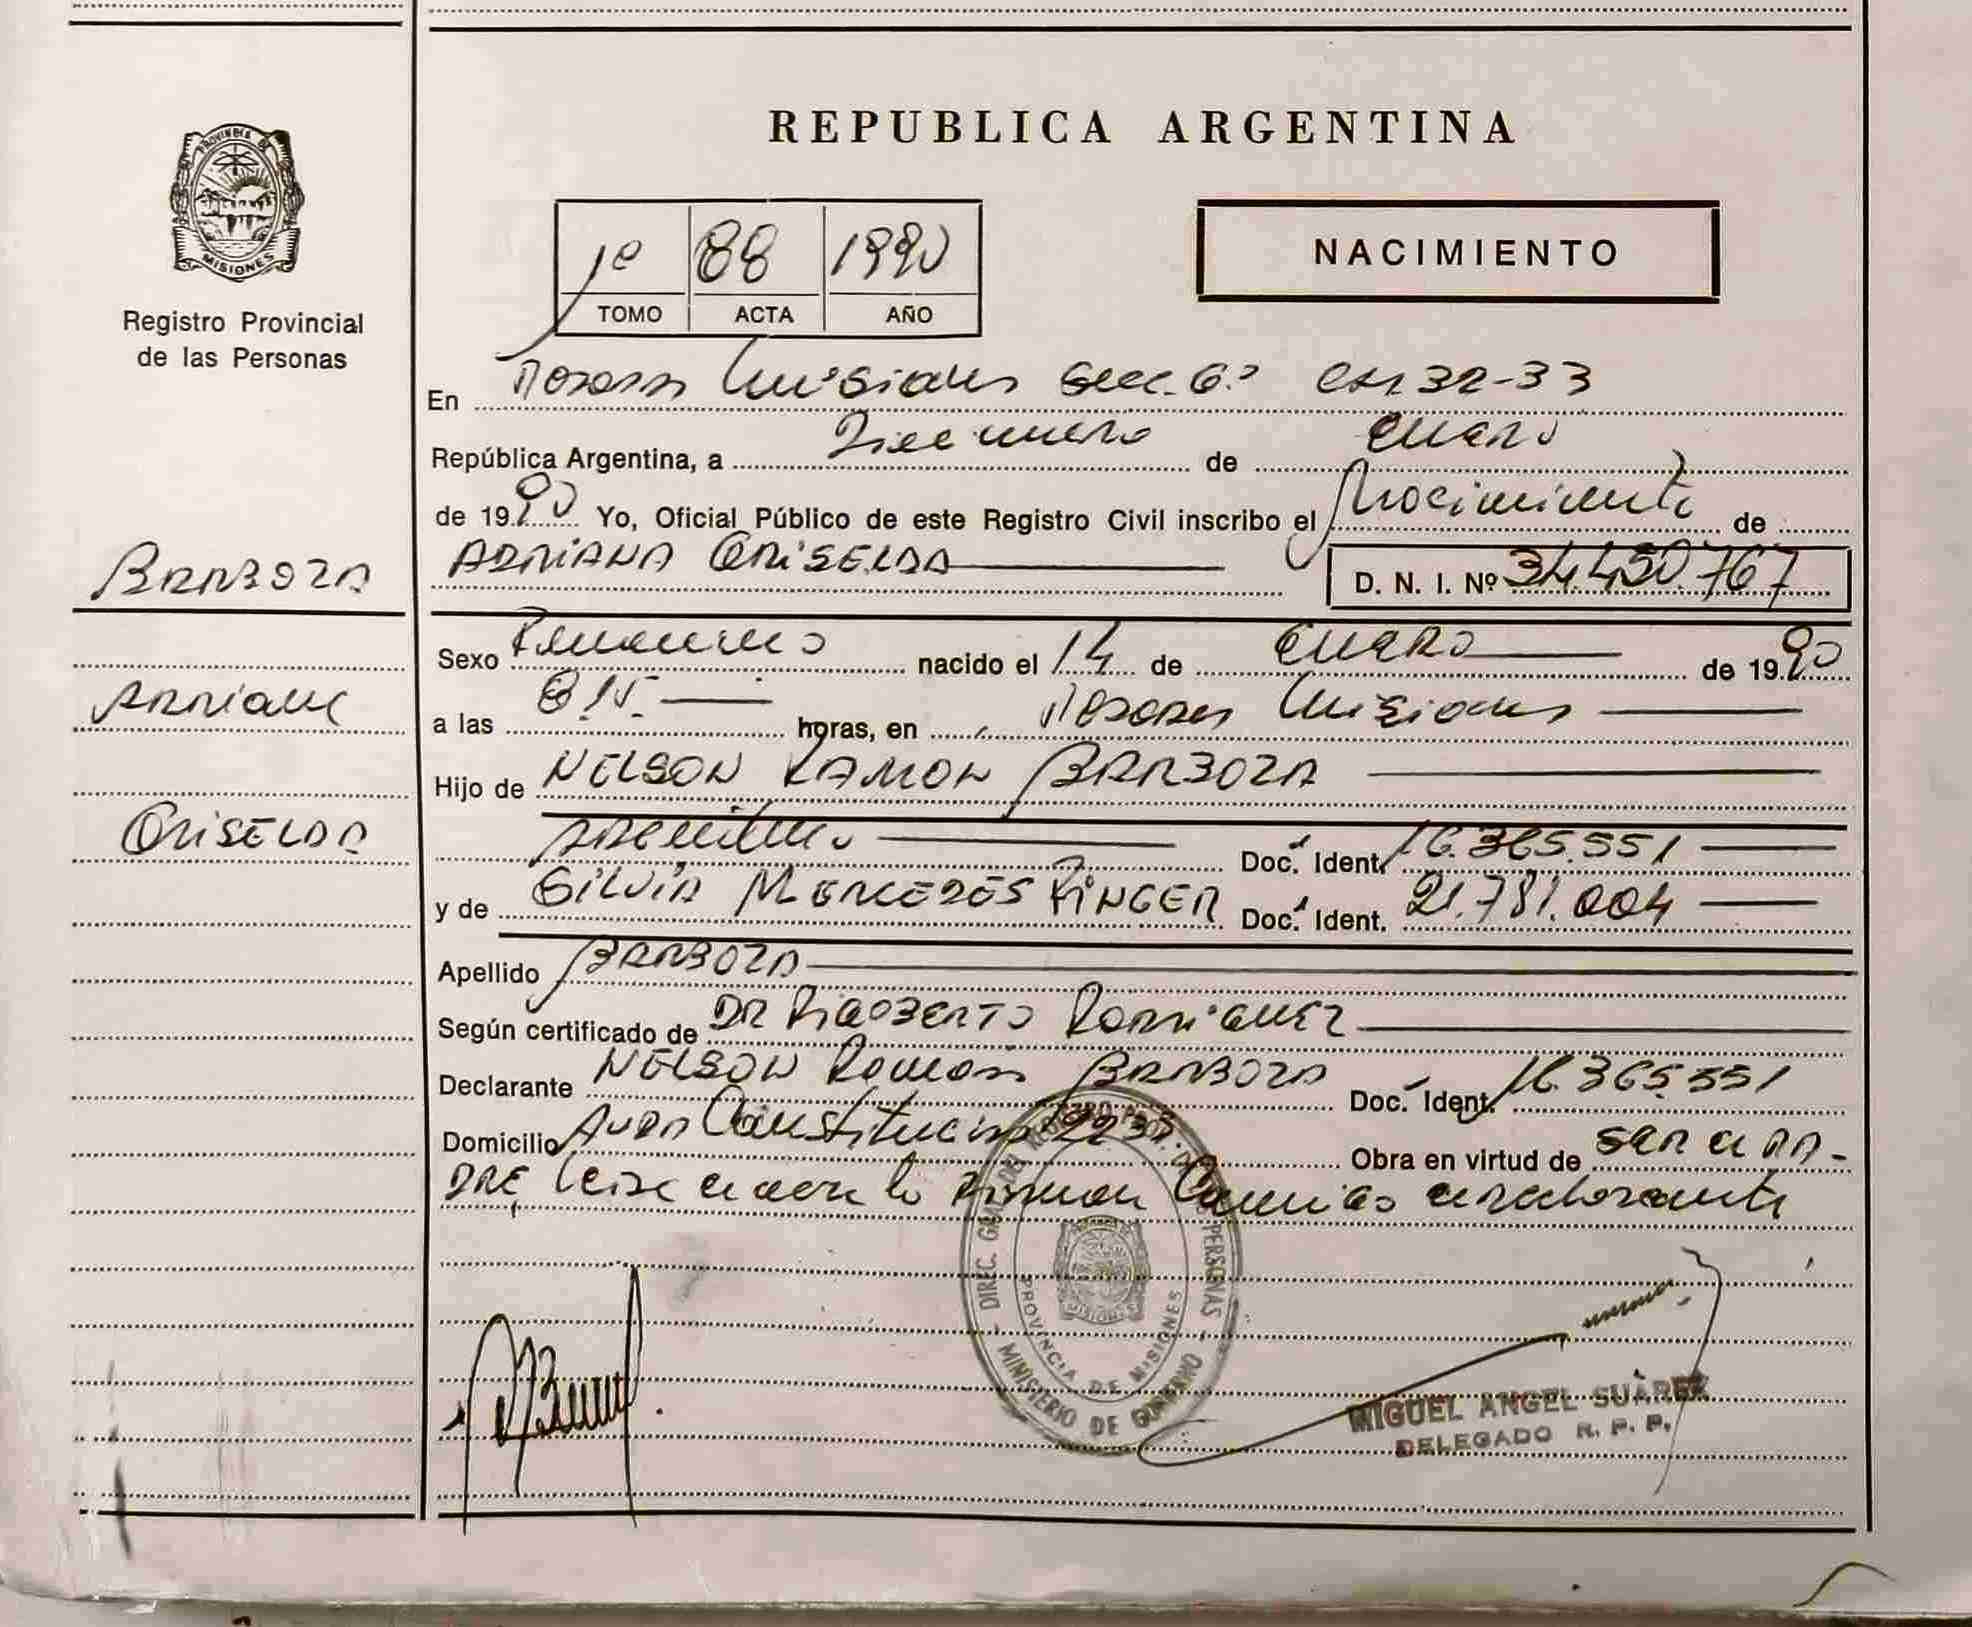 PROVINCIA DE
MISIONES
Registro Provincial
de las Personas
BARBOZA
ADRIANA
GRISELDA
REPUBLICA ARGENTINA
1º 88 1990
TOMO ACTA AÑO
NACIMIENTO
En Posadas Misiones Secc. 6ª 32-33
República Argentina, a de enero
de 1990 Yo, Oficial Público de este Registro Civil inscribo el Nacimiento de
ADRIANA GRISELDA D. N. I. Nº 34.450.767
Sexo Femenino nacido el 14 de ENERO de 1990
a las 8.15. horas, en Posadas Misiones
Hijo de NELSON RAMON BARBOZA
Argentino Doc. Ident. 16.365.551
y de SILVIA MERCEDES FINGER Doc. Ident. 21.781.004
Apellido BARBOZA
Según certificado de DR RIGOBERTO RODRIGUEZ
Declarante NELSON Ramón BARBOZA Doc. Ident. 16.365.551
Domicilio Avda Constitución Obra en virtud de SER EL PA-
DRE Leída el acta la firman Conmigo el declarante
DIREC. GRAL. DEL REGISTRO PROV. DE LAS PERSONAS
PROVINCIA DE MISIONES
MINISTERIO DE GOBIERNO
MISIONES
MIGUEL ANGEL SUÁREZ
DELEGADO R. P. P.